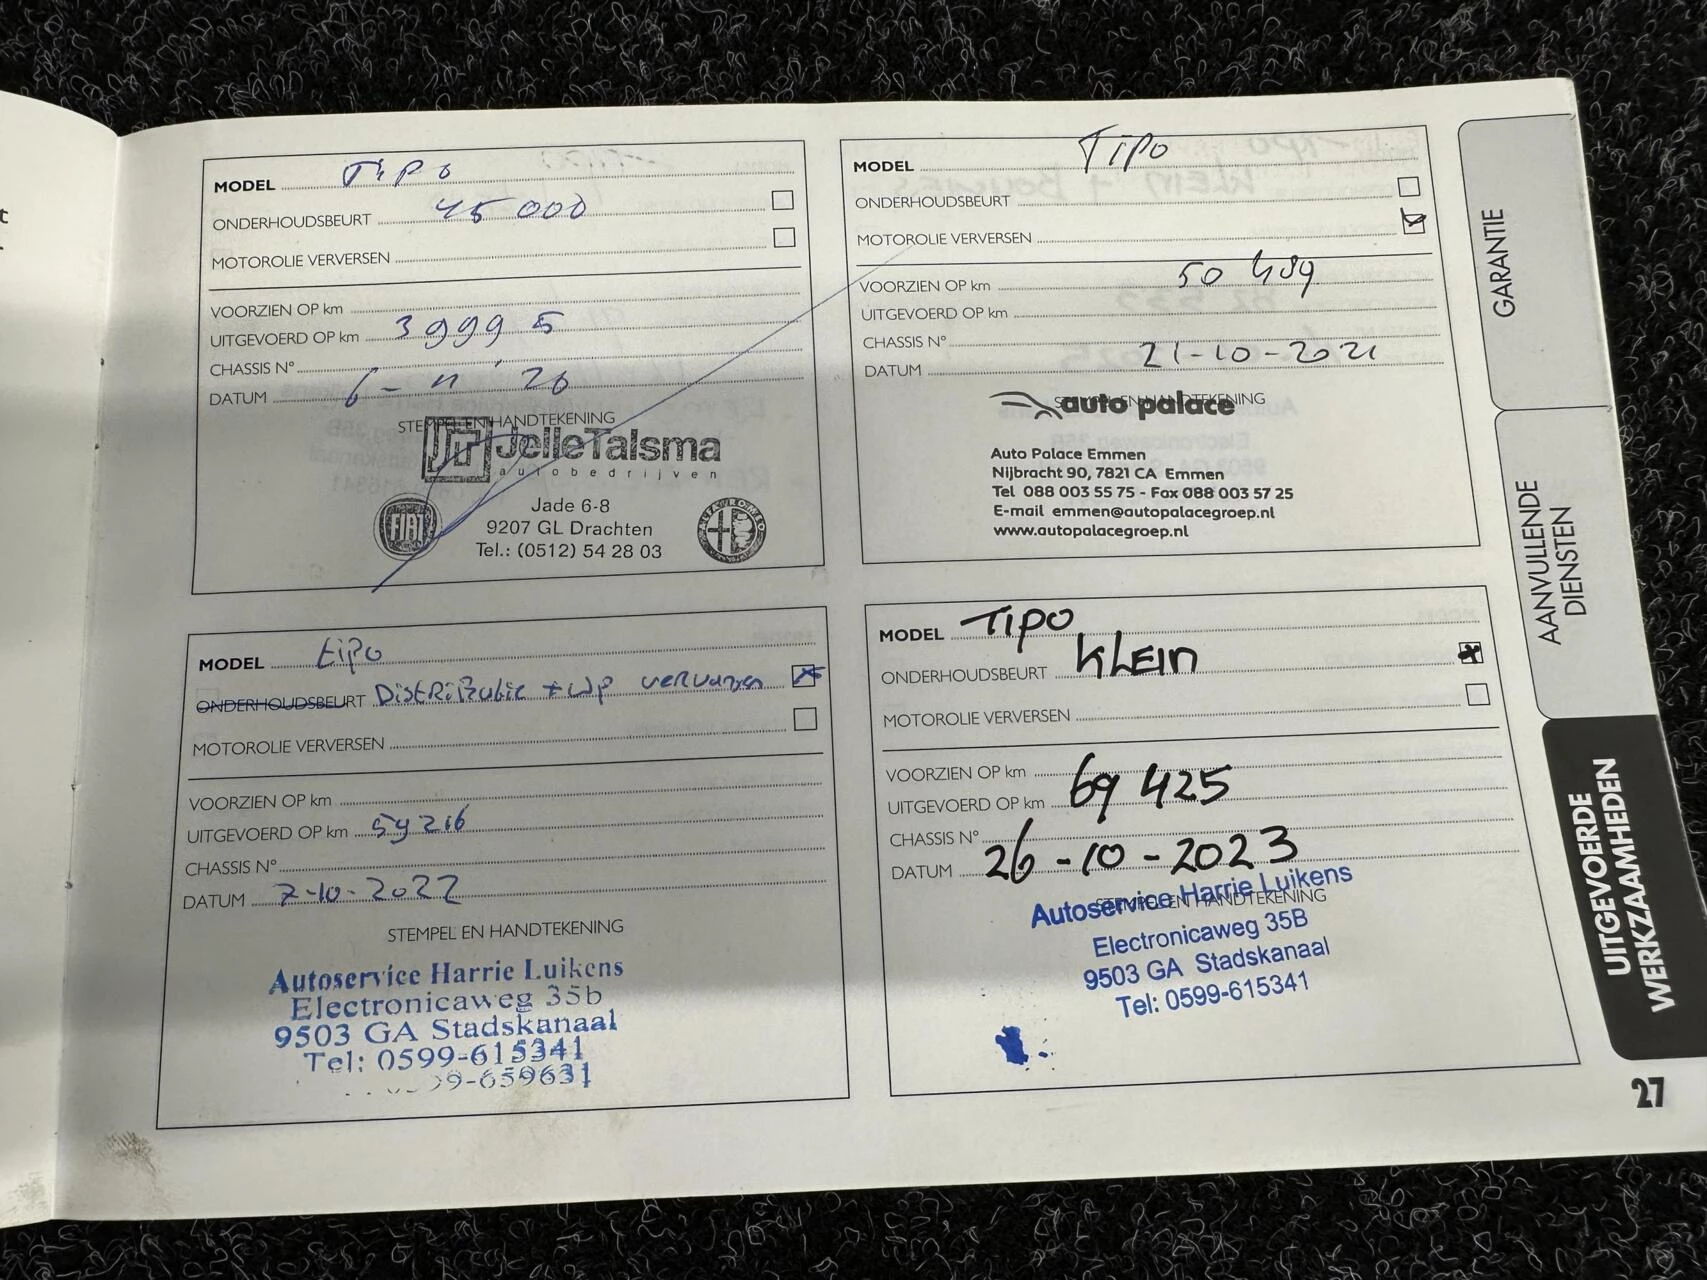 MODEL Tipo
ONDERHOUDSBEURT 45 000
MOTOROLIE VERVERSEN
VOORZIEN OP km
UITGEVOERD OP km 39995
CHASSIS N°
DATUM 6-11'20
STEMPEL EN HANDTEKENING
JT JelleTalsma
autobedrijven
FIAT
Jade 6-8
9207 GL Drachten
Tel.: (0512) 54 28 03
MODEL Tipo
ONDERHOUDSBEURT
MOTOROLIE VERVERSEN
VOORZIEN OP km 50 489
UITGEVOERD OP km
CHASSIS N°
DATUM 21-10-2021
STEMPEL EN HANDTEKENING
auto palace
Auto Palace Emmen
Nijbracht 90, 7821 CA Emmen
Tel 088 003 55 75 - Fax 088 003 57 25
E-mail emmen@autopalacegroep.nl
www.autopalacegroep.nl
MODEL tipo
ONDERHOUDSBEURT Distributie + wp vervangen
MOTOROLIE VERVERSEN
VOORZIEN OP km
UITGEVOERD OP km 59216
CHASSIS N°
DATUM 7-10-2022
STEMPEL EN HANDTEKENING
Autoservice Harrie Luikens
Electronicaweg 35b
9503 GA Stadskanaal
Tel: 0599-615341
99-659631
MODEL TIPO
ONDERHOUDSBEURT KLEIN
MOTOROLIE VERVERSEN
VOORZIEN OP km
UITGEVOERD OP km 69 425
CHASSIS N°
DATUM 26-10-2023
STEMPEL EN HANDTEKENING
Autoservice Harrie Luikens
Electronicaweg 35B
9503 GA Stadskanaal
Tel: 0599-615341
GARANTIE
AANVULLENDE
DIENSTEN
UITGEVOERDE
WERKZAAMHEDEN
27